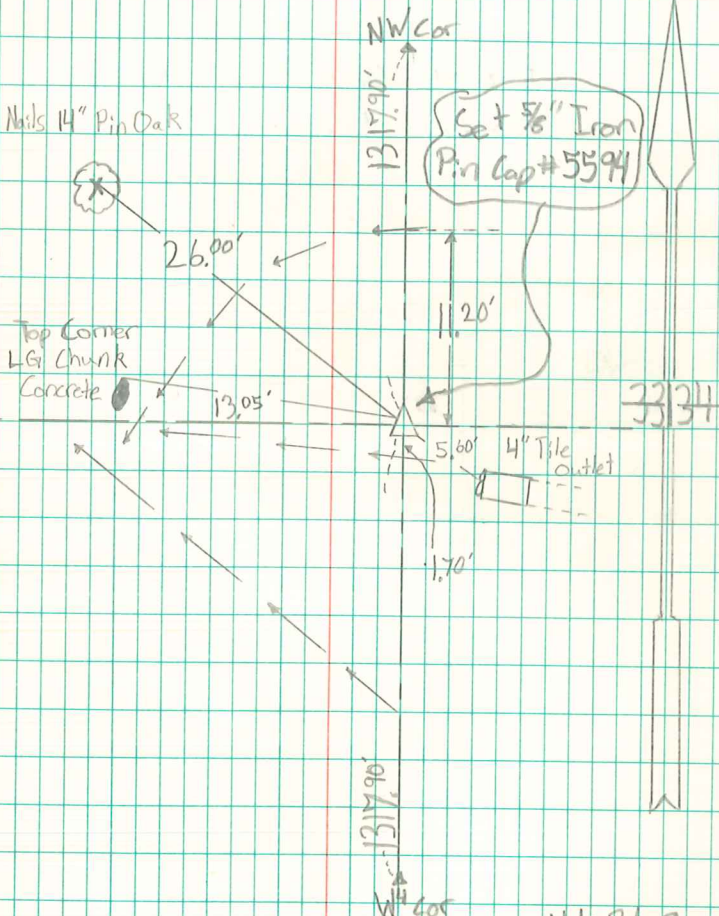 NW Cor
1317.90'
Set 5/8" Iron
Pin Cap # 5594
Nails 14" Pin Oak
26.00'
11.20'
Top Corner
LG Chunk
Concrete
13.05'
33|34
5.60'
4" Tile
Outlet
1.70'
1317.90'
W¼ Cor